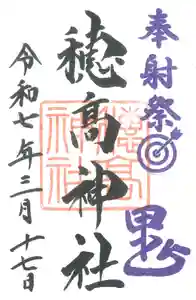 奉射祭
穂高神社
令和七年三月十七日
穂高神社